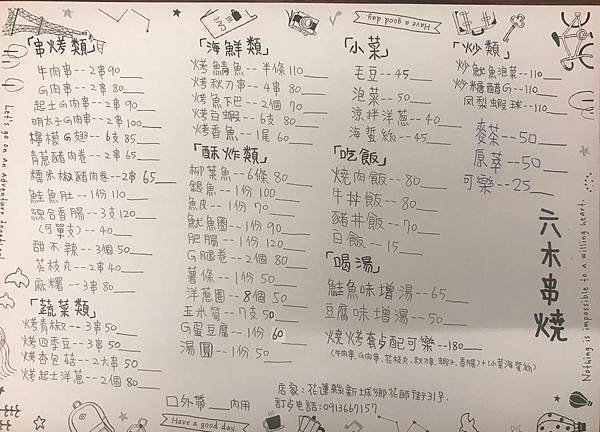 「串烤類」
牛肉串--2串90
G肉串--2串 80
起士G肉串--2串 90
明太子G肉串--2串 100
檸檬G翅--6支 85
青蔥豬肉卷--2串 65
糯米椒豬肉卷--2串 65
鮭魚肚--1份 110
綜合香腸--3支120
(可單支)--40
甜不辣--3個 50
花枝丸--2串 40
麻糬--3串 80
「蔬菜類」
烤青椒--3串50
烤四季豆--3串 50
烤杏包菇--2大串 50
烤起士洋蔥--2個 80
「海鮮類」
烤鯖魚--半條 110
烤秋刀串--4串 80
烤魚下巴--2個 70
烤白蝦--6支 80
烤香魚--1尾 60
「酥炸類」
柳葉魚--6條 80
銀魚--1份 100
魚皮--1份 70
魷魚圈--1份 90
肥腸--1份 120
G腿卷--2個 80
薯條--1份 50
洋蔥圈--8個 50
玉米筍--7支50
G蛋豆腐--1份 60
湯圓--1份 50
「小菜」
毛豆--45
泡菜--50
涼拌洋蔥--40
海蜇絲--45
「吃飯」
燒肉飯--80
牛丼飯--80
豬丼飯--70
白飯--15
「喝湯」
鮭魚味增湯--65
豆腐味增湯--50
燒烤套歺配可樂--180
(牛肉串、G肉串、花枝丸、秋刀串、蝦子、香腸)+(小菜海蜇絲)
「炒類」
炒魷魚泡菜--110
炒糖醋G--110
鳳梨蝦球--110
麥茶--50
原萃--50
可樂--25
六木串燒
店家:花蓮縣新城鄉花師街31号.
訂歺電話:0913667157
□外帶 內用
Have a good day.
Have a good day.
Let's go on an adventure together!
Nothing is impossible to a willing heart.